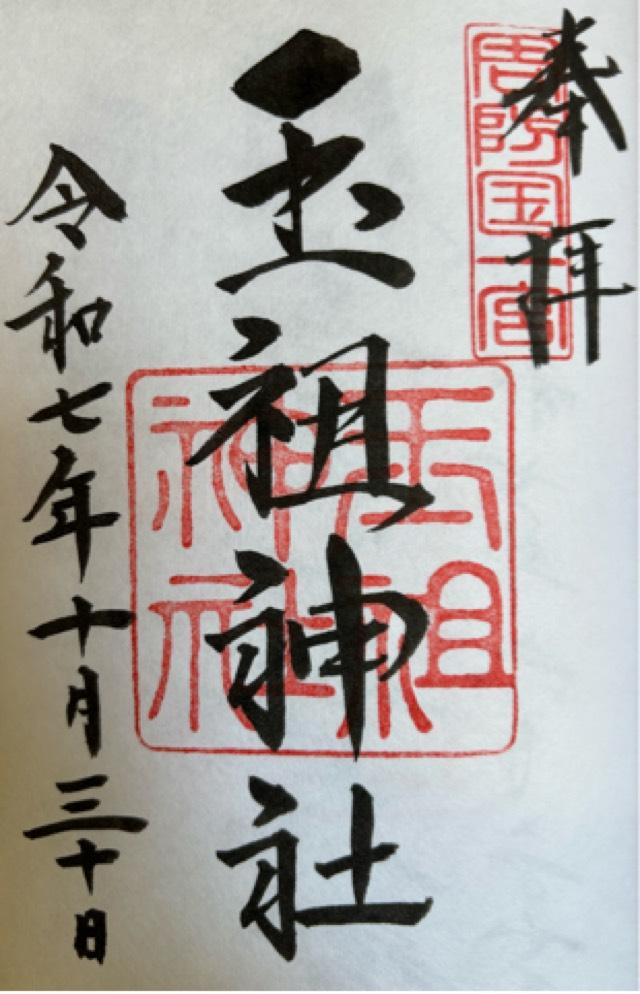 奉拝
周防国一宮
玉祖神社
玉祖神社
令和七年十月三十日